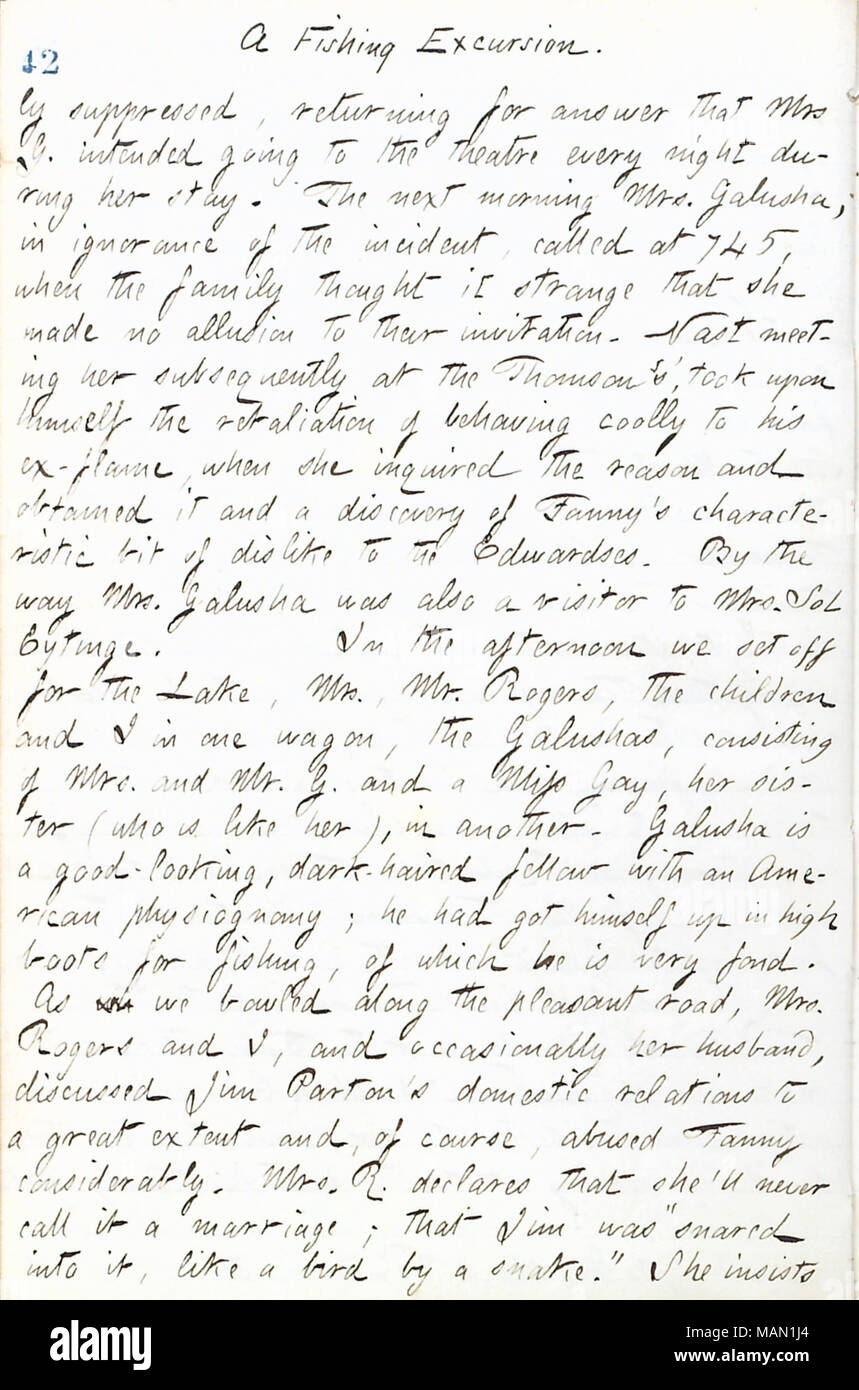 A Fishing Excursion.
42
ly suppressed, returning for answer that Mrs
G. intended going to the theatre every night du-
ring her stay. The next morning Mrs. Galusha,
in ignorance of the incident, called at 745,
when the family thought it strange that she
made no allusion to their invitation. Nast meet-
ing her subsequently at the Thomson's', took upon
himself the retaliation of behaving coolly to his
ex-flame, when she inquired the reason and
obtained it and a discovery of Fanny's characte-
ristic bit of dislike to the Edwardses. By the
way Mrs. Galusha was also a visitor to Mrs. Sol
Eytinge. In the afternoon we set off
for the Lake, Mrs., Mr. Rogers, the children
and I in one wagon, the Galushas, consisting
of Mrs. and Mr. G. and a Miss Gay, her sis-
ter (who is like her), in another. Galusha is
a good-looking, dark-haired fellow with an Ame-
rican physiognomy; he had got himself up in high
boots for fishing, of which he is very fond.
As we bowled along the pleasant road, Mrs.
Rogers and I, and occasionally her husband,
discussed Jim Parton's domestic relations to
a great extent and, of course, abused Fanny
considerably. Mrs. R. declares that she'll never
call it a marriage; that Jim was "snared
into it, like a bird by a snake." She insists
alamy
Image ID: MAN1J4
www.alamy.com